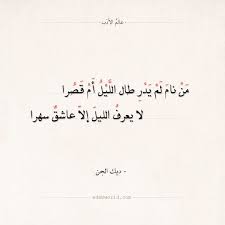 عالم الأدب
مَنْ نامَ لَمْ يَدْرِ طال اللَّيْلُ أَمْ قَصُرا
لا يعرفُ الليلَ إلاّ عاشقٌ سهرا
- ديك الجن
adabworld.com